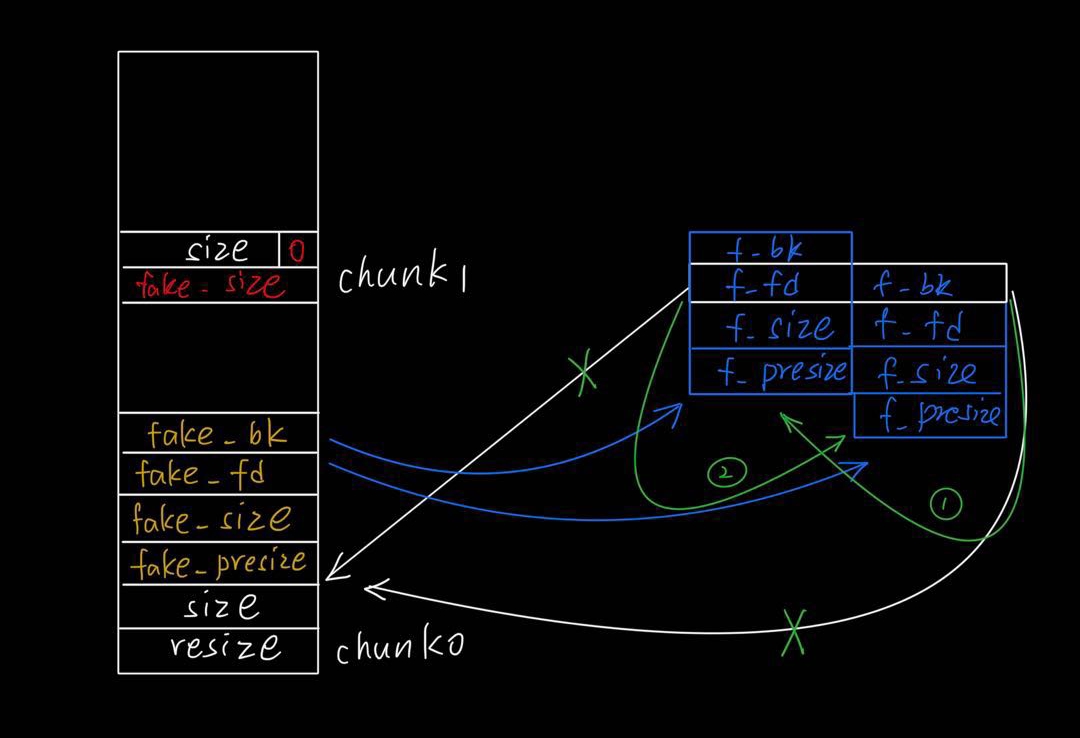 size 0
fake_size
chunk1
fake_bk
fake_fd
fake_size
fake_presize
size
resize
chunk0
f_bk
f_fd
f_size
f_presize
f_bk
f_fd
f_size
f_presize
②
①